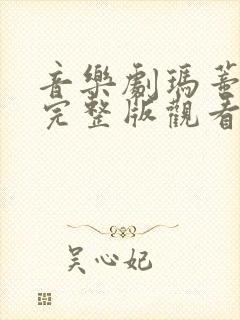 音樂劇瑪蒂
完整版觀看
吴心妃